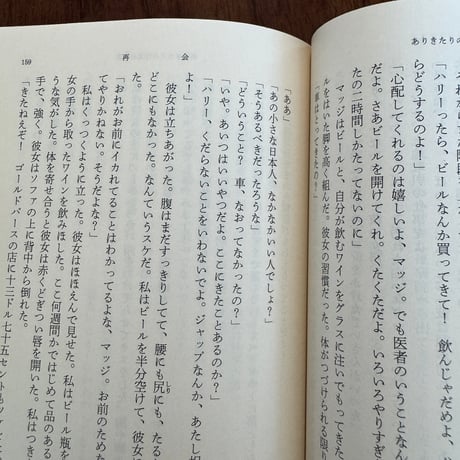 ありきたりの
ハリーったら、ビールなんか買ってきて! 飲んじゃだめよ、
らどうするのよ!」
「心配してくれるのは嬉しいよ、マッジ。でも医者のいうことなん
だよ。さあビールを開けてくれ。くたくただよ。いろいろやりすぎ
たの二時間しかたってないのに」
マッジはビールと、自分が飲むワインをグラスに注いでもってきた。
ルをはいた脚を高く組んだ。彼女の習慣だった。体がつづけられる限り
「車はとってきたの?」
159
再会
「ああ」
「あの小さな日本人、なかなかいい人でしょ?」
「そうあるべきだったろうな」
「どういうこと? 車、なおってなかったの?」
「いや。あいつはいいやつだよ。ここにきたことあるのか?」
「ハリー、くだらないことをいわないでよ。ジャップなんか、あたし
よ!」
彼女は立ちあがった。腹はまだすっきりしてて、腰にも尻にも、たる
しり
どこにもなかった。なんていうスケだ。私はビールを半分空けて、彼女
「おれがお前にイカれてることはわかってるよな、マッジ。お前のため
てやりかねない。そうだよな?」
私はくっつくように立った。彼女はほほえんで見せた。私はビール瓶を
女の手から取ったワインを飲みほした。ここ何週間かではじめて品のある
うな気がした。体を寄せ合うと彼女は赤くどぎつい唇を開いた。私はつき
手で、強く。彼女はソファの上に背中から倒れた。
「きたねえぞ! ゴールドバースの店に十三ドル七十五セント